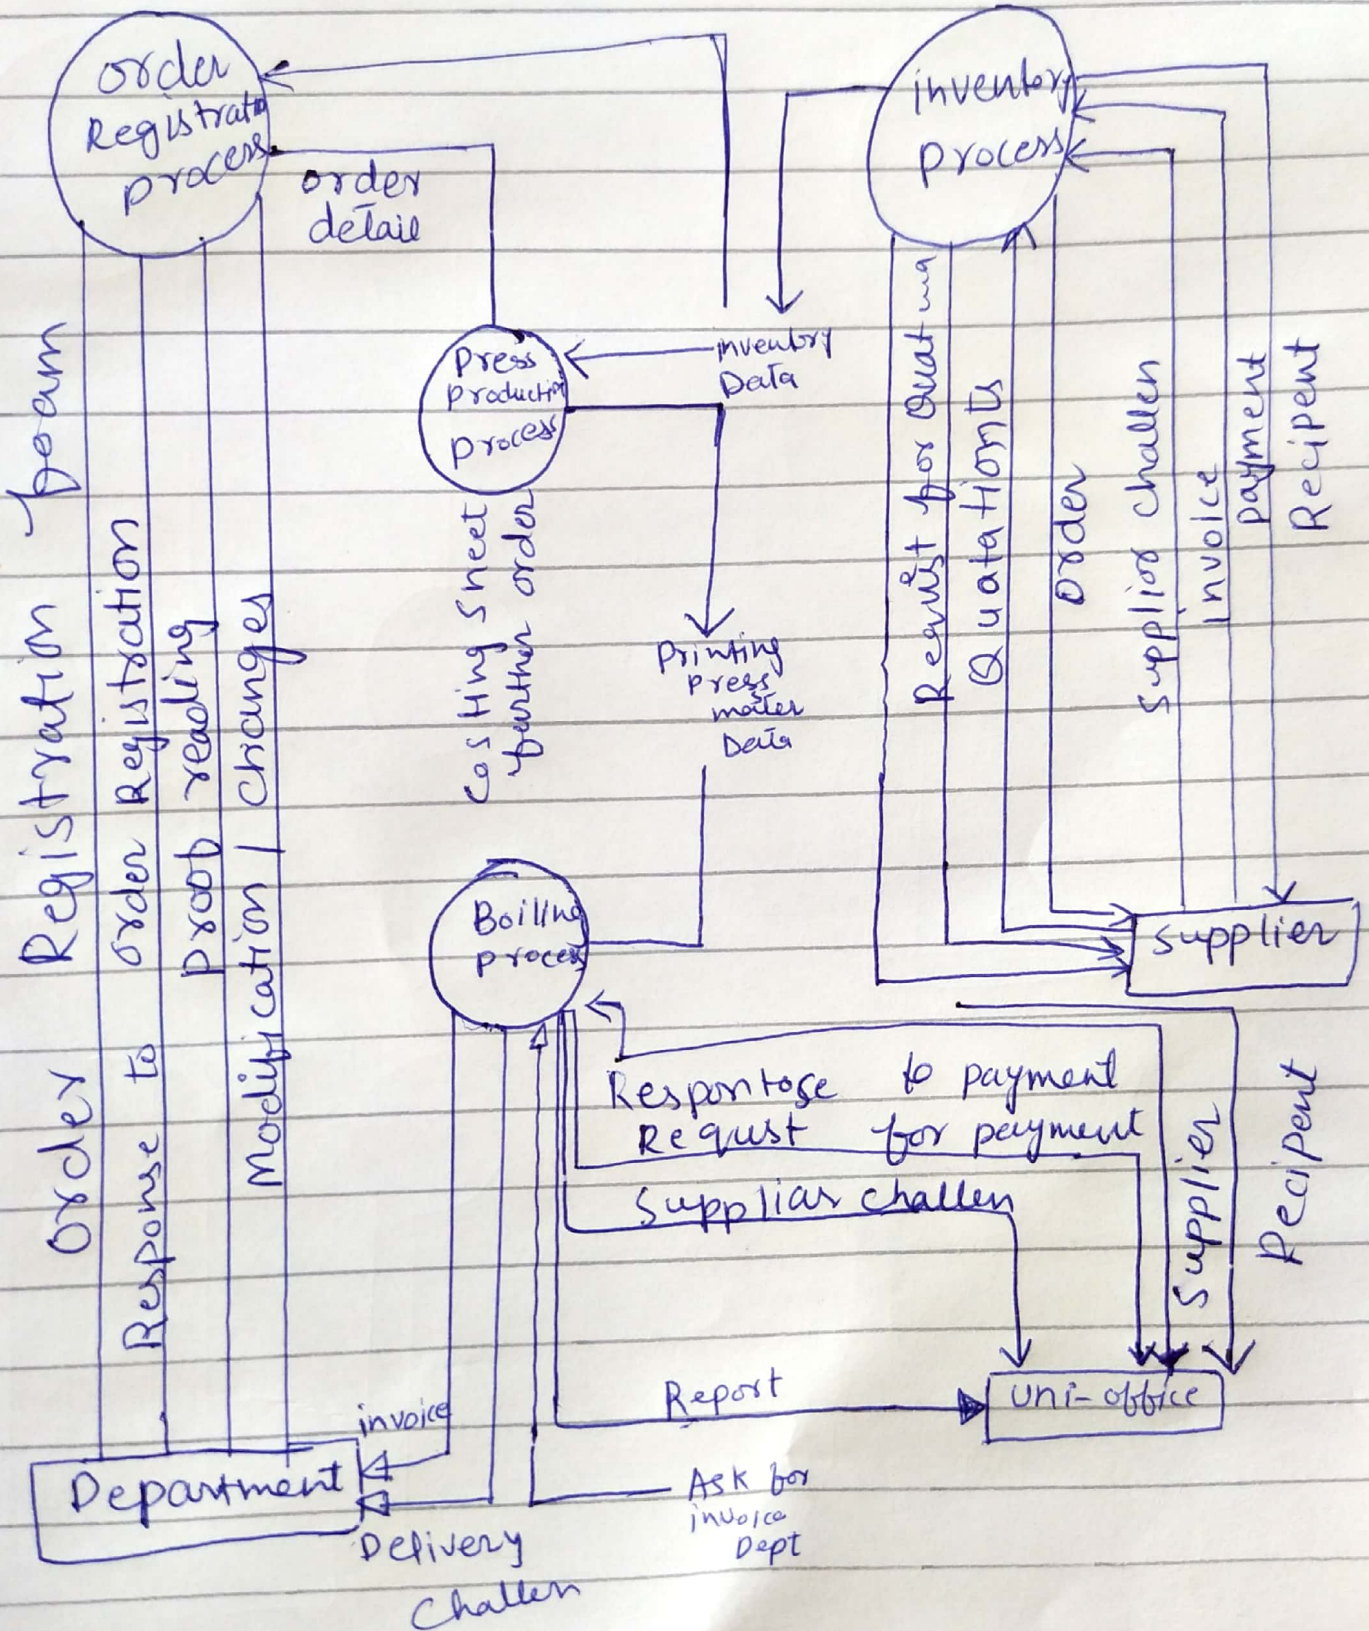 order
Registratio
process
order
detail
inventory
process
Press
production
process
inventory
Data
Registration foam
Order
Response to order Registration
Proof reading
Modification / Changes
Costing Sheet
further order
Printing
Press
mater
Data
Request for
Quatationts
order
Supplior challen
invoice
payment
Recipent
supplier
Boilling
process
Respontose to payment
Requst for payment
Suppliar challen
Supplier
Recipent
Report
uni-office
invoice
Department
Delivery
Challen
Ask for
invoice
Dept